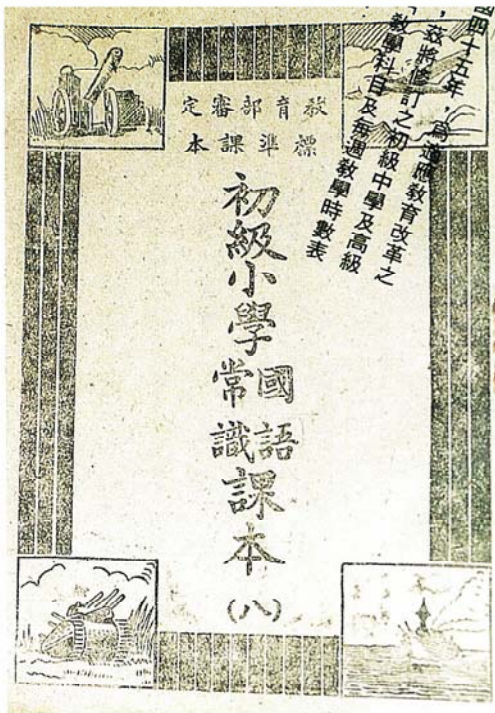 國四十五年，爲適應教育改革之
，茲將修訂之初級中學及高級
「教學科目及每週教學時數表
教育部審定
標準課本
初級小學
國語
常識
課本
(八)